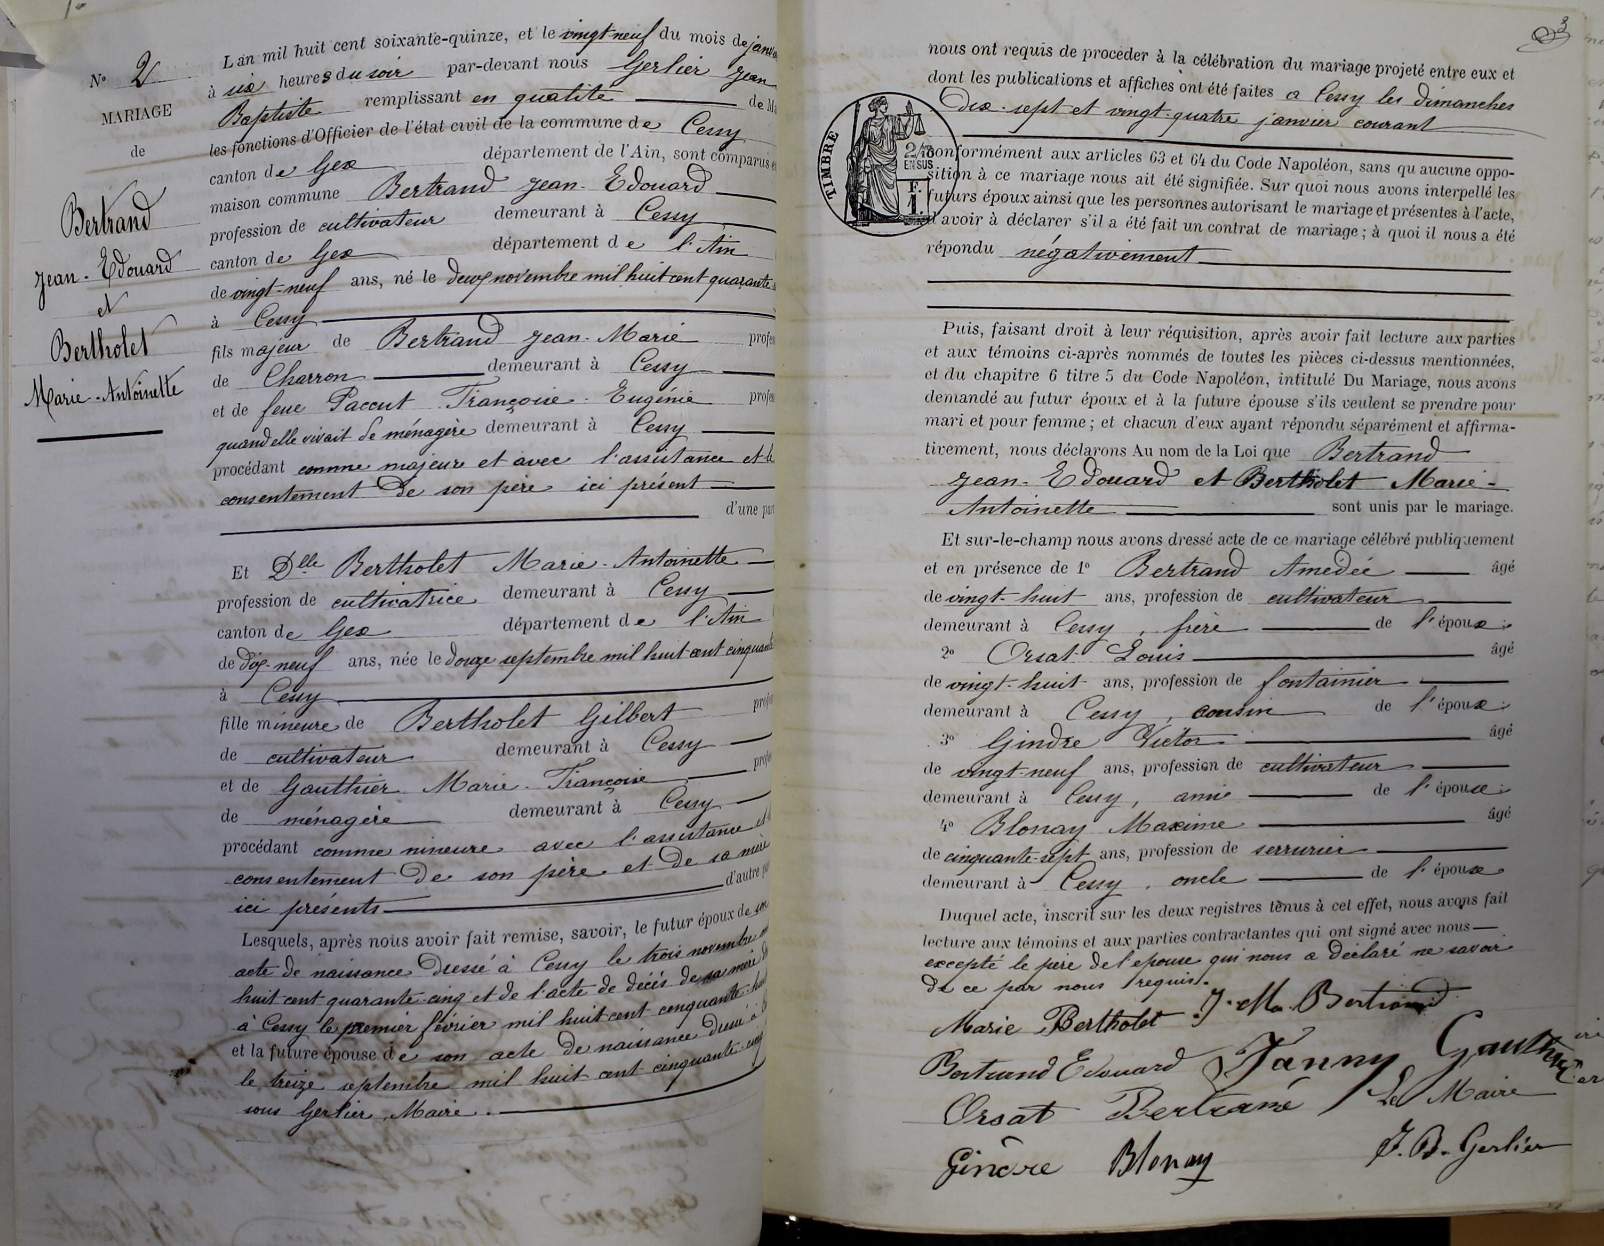 N° 2
MARIAGE
de
Bertrand
Jean-Edouard
et
Bertholet
Marie-Antoinette
L'an mil huit cent soixante-quinze, et le vingt-neuf du mois de janv
à six heures du soir par-devant nous Gerlier Jean
Baptiste remplissant en qualité de M
les fonctions d'Officier de l'état civil de la commune de Cessy
canton de Gex département de l'Ain, sont comparus e
maison commune Bertrand Jean-Edouard
profession de cultivateur demeurant à Cessy
canton de Gex département de l'Ain
de vingt-neuf ans, né le deux novembre mil huit cent quarante
à Cessy
fils majeur de Bertrand Jean-Marie profes
de Charron demeurant à Cessy
et de feue Paccut Françoise-Eugénie profes
quand elle vivait de ménagère demeurant à Cessy
procédant comme majeure et avec l'assistance et le
consentement de son père ici présent
d'une part
Et Dlle Bertholet Marie-Antoinette
profession de cultivatrice demeurant à Cessy
canton de Gex département de l'Ain
de dix-neuf ans, née le douze septembre mil huit cent cinquante
à Cessy
fille mineure de Bertholet Gilbert profes
de cultivateur demeurant à Cessy
et de Gauthier Marie-Françoise profes
de ménagère demeurant à Cessy
procédant comme mineure avec l'assistance et
consentement de son père et de sa mère
ici présents d'autre p
Lesquels, après nous avoir fait remise, savoir, le futur époux de son
acte de naissance dressé à Cessy le trois novembre
huit cent quarante-cinq et de l'acte de décès de sa mère
à Cessy le premier février mil huit cent cinquante-hu
et la future épouse de son acte de naissance dressé à
le treize septembre mil huit cent cinquante-cinq
sous Gerlier, Maire.
3
nous ont requis de proceder à la célébration du mariage projeté entre eux et
dont les publications et affiches ont été faites à Cessy les dimanches
dix-sept et vingt-quatre janvier courant
TIMBRE
EN SUS
conformément aux articles 63 et 64 du Code Napoléon, sans qu'aucune oppo-
sition à ce mariage nous ait été signifiée. Sur quoi nous avons interpellé les
futurs époux ainsi que les personnes autorisant le mariage et présentes à l'acte,
d'avoir à déclarer s'il a été fait un contrat de mariage; à quoi il nous a été
répondu négativement
Puis, faisant droit à leur réquisition, après avoir fait lecture aux parties
et aux témoins ci-après nommés de toutes les pièces ci-dessus mentionnées,
et du chapitre 6 titre 5 du Code Napoléon, intitulé Du Mariage, nous avons
demandé au futur époux et à la future épouse s'ils veulent se prendre pour
mari et pour femme; et chacun d'eux ayant répondu séparément et affirma-
tivement, nous déclarons Au nom de la Loi que Bertrand
Jean-Edouard et Bertholet Marie-
Antoinette sont unis par le mariage.
Et sur-le-champ nous avons dressé acte de ce mariage célébré publiquement
et en présence de 1° Bertrand Amedée âgé
de vingt-huit ans, profession de cultivateur
demeurant à Cessy, frère de l'époux
2° Orsat Louis âgé
de vingt-huit ans, profession de fontainier
demeurant à Cessy, cousin de l'époux
3° Gindre Victor âgé
de vingt-neuf ans, profession de cultivateur
demeurant à Cessy, ami de l'épouse
4° Blonay Maxime âgé
de cinquante-sept ans, profession de serrurier
demeurant à Cessy, oncle de l'épouse
Duquel acte, inscrit sur les deux registres tenus à cet effet, nous avons fait
lecture aux témoins et aux parties contractantes qui ont signé avec nous
excepté le père de l'épouse qui nous a déclaré ne savoir
de ce par nous requis.
Marie Bertholet J. M. Bertrand
Bertrand Edouard Fanny Gauthier
Orsat Bertrand Le Maire
Gindre Blonay J. B. Gerlier